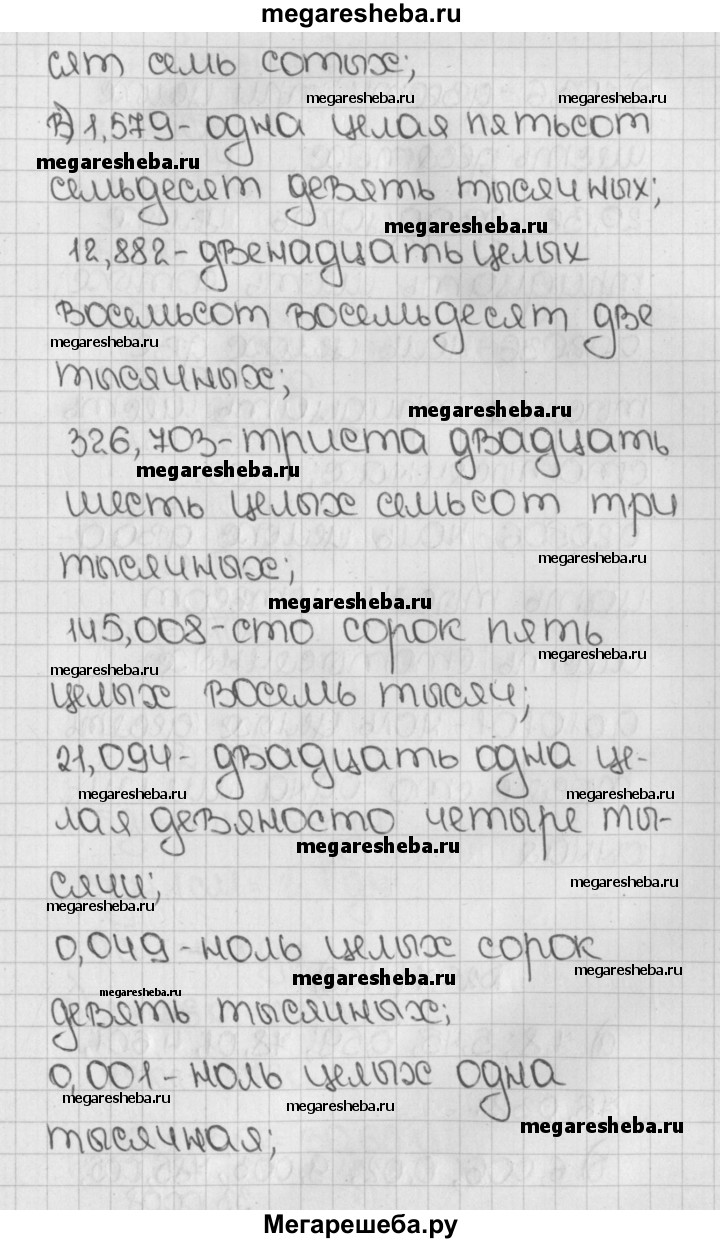 megaresheba.ru
сят семь сотых;
megaresheba.ru megaresheba.ru
в) 1,579 - одна целая пятьсот
megaresheba.ru
семьдесят девять тысячных;
megaresheba.ru
12,882 - двенадцать целых
восемьсот восемьдесят две
megaresheba.ru
тысячных;
megaresheba.ru
326,703 - триста двадцать
megaresheba.ru
шесть целых семьсот три
megaresheba.ru
тысячных;
megaresheba.ru
145,008 - сто сорок пять
megaresheba.ru
megaresheba.ru
целых восемь тысяч;
21,094 - двадцать одна це-
megaresheba.ru megaresheba.ru
лая девяносто четыре ты-
megaresheba.ru
сячи;
megaresheba.ru
megaresheba.ru
0,049 - ноль целых сорок
megaresheba.ru
megaresheba.ru
megaresheba.ru
девять тысячных;
0,001 - ноль целых одна
megaresheba.ru
megaresheba.ru
megaresheba.ru
тысячная;
Мегарешеба.ру